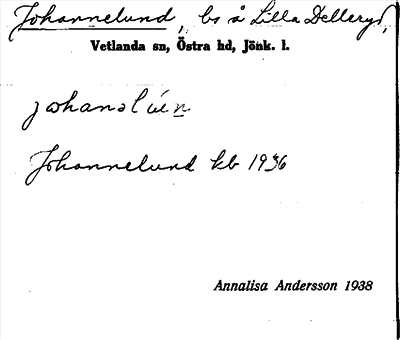 Johannelund, bs å Lilla Delleryd,
Vetlanda sn, Östra hd, Jönk. l.
Johannelund kb 1936
Annalisa Andersson 1938